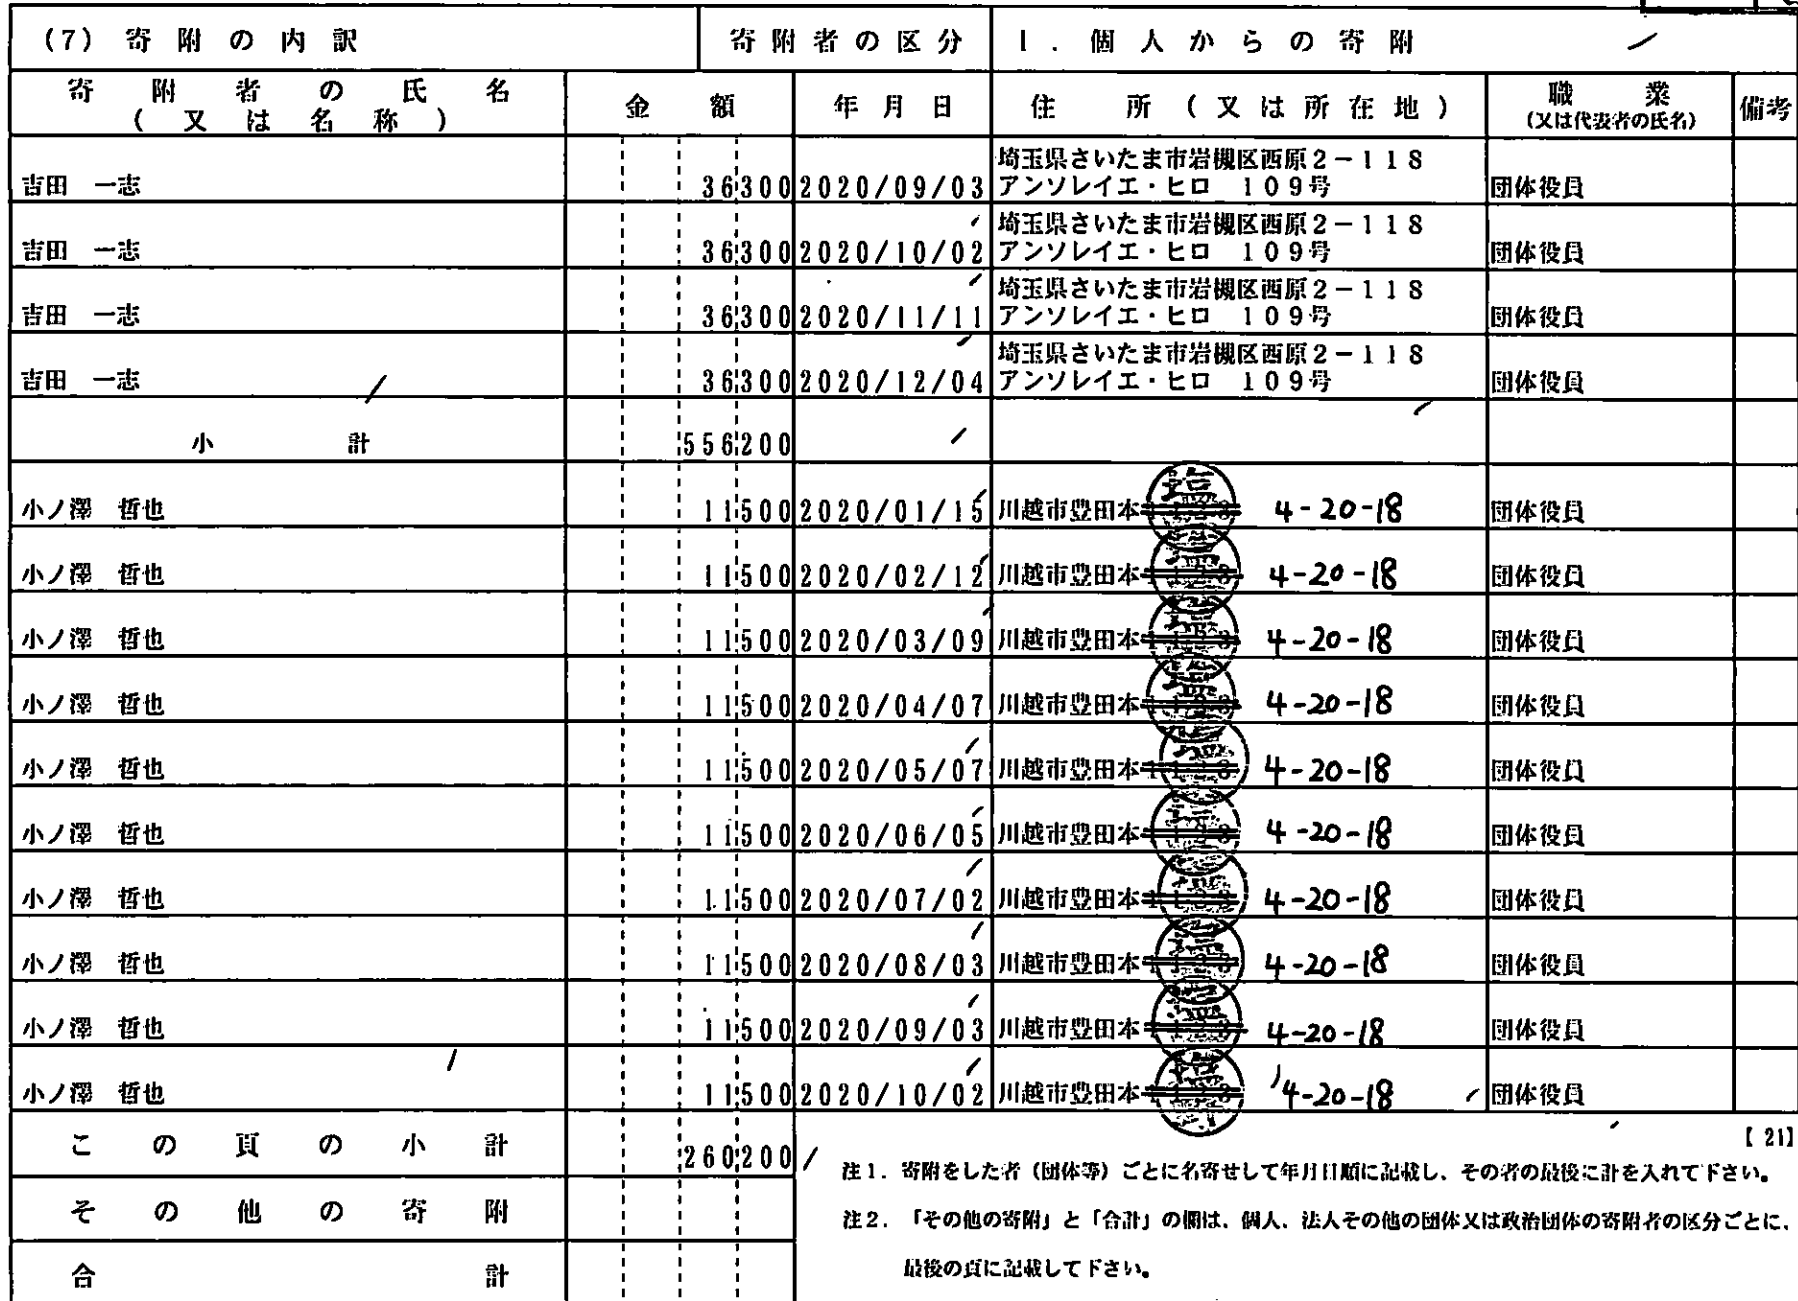 (7) 寄附の内訳 寄附者の区分 1. 個人からの寄附
寄附者の氏名 (又は名称) 金額 年月日 住所(又は所在地) 職業 (又は代表者の氏名) 備考
埼玉県さいたま市岩槻区西原2-118
吉田 一志 36300 2020/09/03 アンソレイエ・ヒロ 109号 団体役員
埼玉県さいたま市岩槻区西原2-118
吉田 一志 36300 2020/10/02 アンソレイエ・ヒロ 109号 団体役員
埼玉県さいたま市岩槻区西原2-118
吉田 一志 36300 2020/11/11 アンソレイエ・ヒロ 109号 団体役員
埼玉県さいたま市岩槻区西原2-118
吉田 一志 36300 2020/12/04 アンソレイエ・ヒロ 109号 団体役員
小計 556200
小ノ澤 哲也 11500 2020/01/15 川越市豊田本 4-20-18 団体役員
小ノ澤 哲也 11500 2020/02/12 川越市豊田本 4-20-18 団体役員
小ノ澤 哲也 11500 2020/03/09 川越市豊田本 4-20-18 団体役員
小ノ澤 哲也 11500 2020/04/07 川越市豊田本 4-20-18 団体役員
小ノ澤 哲也 11500 2020/05/07 川越市豊田本 4-20-18 団体役員
小ノ澤 哲也 11500 2020/06/05 川越市豊田本 4-20-18 団体役員
小ノ澤 哲也 11500 2020/07/02 川越市豊田本 4-20-18 団体役員
小ノ澤 哲也 11500 2020/08/03 川越市豊田本 4-20-18 団体役員
小ノ澤 哲也 11500 2020/09/03 川越市豊田本 4-20-18 団体役員
小ノ澤 哲也 11500 2020/10/02 川越市豊田本 4-20-18 団体役員
この頁の小計 260200
その他の寄附
合計
【 21】
注1. 寄附をした者(団体等)ごとに名寄せして年月日順に記載し、その者の最後に計を入れて下さい。
注2. 「その他の寄附」と「合計」の欄は、個人、法人その他の団体又は政治団体の寄附者の区分ごとに、
最後の頁に記載して下さい。